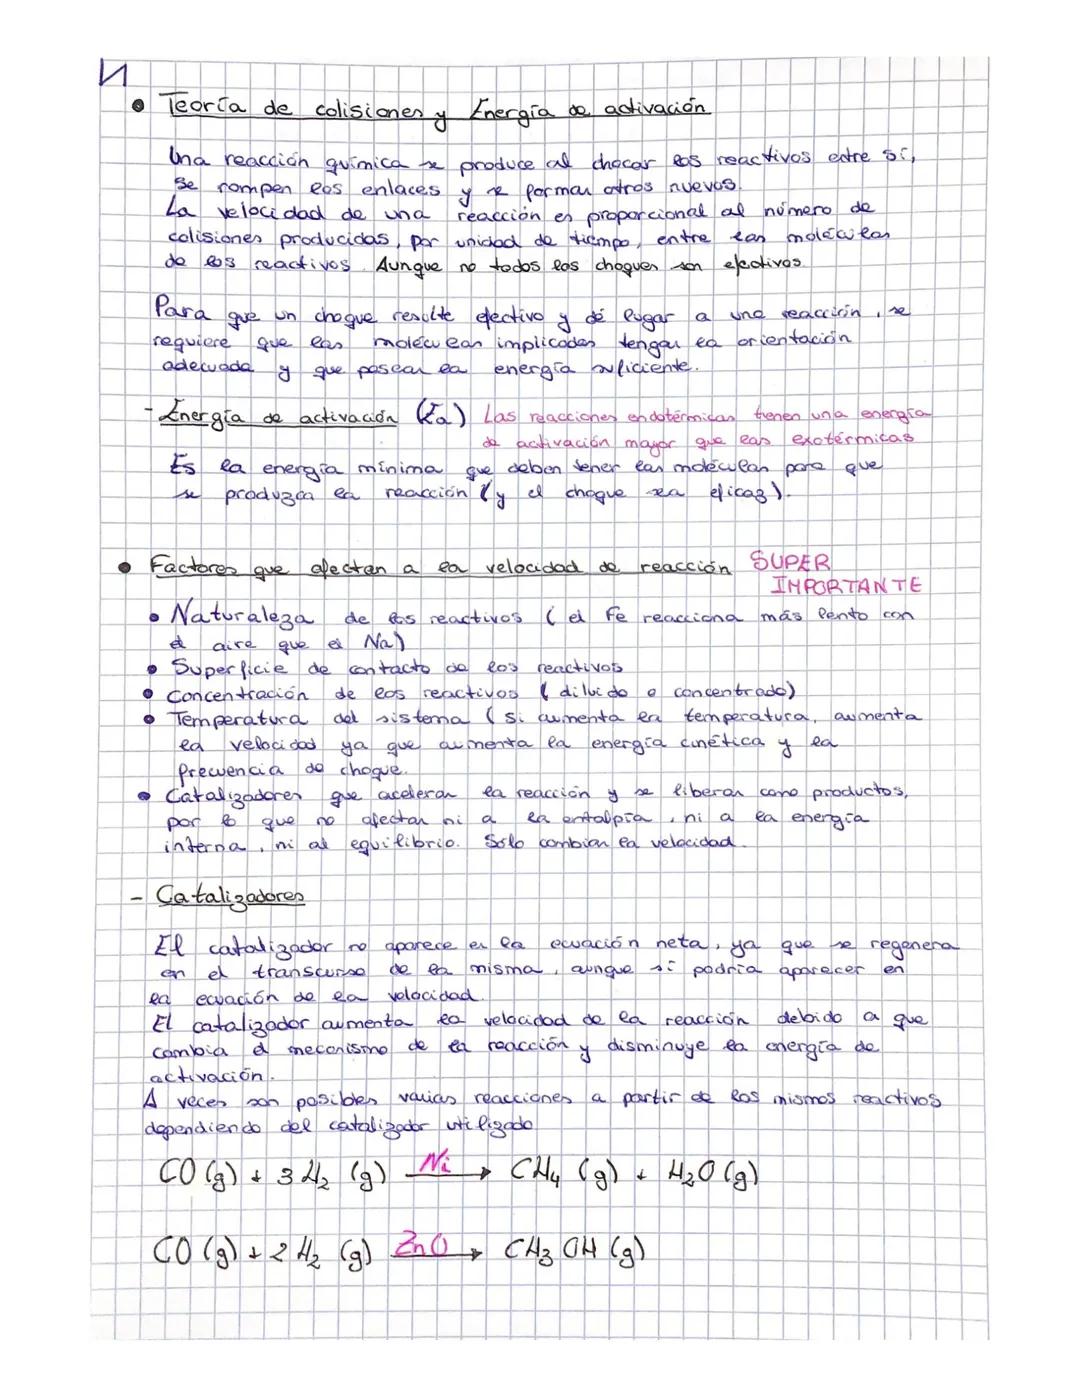 • Teoría de colisiones y Energía de activación
Una reacción química se produce al chocar los reactivos entre sí,
se rompen los enlaces y se forman otros nuevos.
La velocidad de una reacción es proporcional al número de
colisiones producidas, por unidad de tiempo, entre las moléculas
de los reactivos. Aunque no todos los choques son efectivos.
Para que un choque resulte efectivo y dé lugar a una reacción, se
requiere que las moléculas implicadas tengan la orientación
adecuada y que posean la energía suficiente.
- Energía de activación (Ea) Las reacciones endotérmicas tienen una energía
de activación mayor que las exotérmicas
Es la energía mínima que deben tener las moléculas para que
se produzca la reacción (y el choque sea eficaz).
• Factores que afectan a la velocidad de reacción SUPER
IMPORTANTE
• Naturaleza de los reactivos (el Fe reacciona más lento con
el aire que el Na)
• Superficie de contacto de los reactivos
• Concentración de los reactivos (diluido o concentrado)
• Temperatura del sistema (si aumenta la temperatura, aumenta
la velocidad ya que aumenta la energía cinética y la
frecuencia de choque.
• Catalizadores que aceleran la reacción y se liberan como productos,
por lo que no afectan ni a la entalpía, ni a la energía
interna, ni al equilibrio. Sólo cambian la velocidad.
- Catalizadores
El catalizador no aparece en la ecuación neta, ya que se regenera
en el transcurso de la misma, aunque sí podría aparecer en
la ecuación de la velocidad.
El catalizador aumenta la velocidad de la reacción debido a que
cambia el mecanismo de la reacción y disminuye la energía de
activación.
A veces son posibles varias reacciones a partir de los mismos reactivos
dependiendo del catalizador utilizado
CO (g) + 3 H₂ (g) —Ni→ CH₄ (g) + H₂O (g)
CO (g) + 2 H₂ (g) —ZnO→ CH₃OH (g)